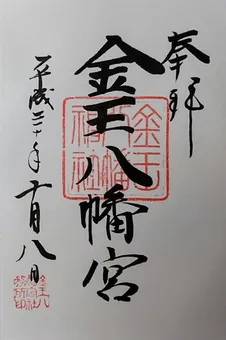 奉拝
金王八幡宮
平成三十年十月八日
金王
八幡
神社
金王八
幡宮社
務所印